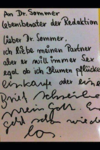 An Dr. Sommer
Lebensberater der Redaktion
Lieber Dr. Sommer.
ich liebe meinen Partner
aber er will immer Sex
egal ob ich Blumen pflücke
einkaufe oder ein
mein Gott
geht schon wieder
los